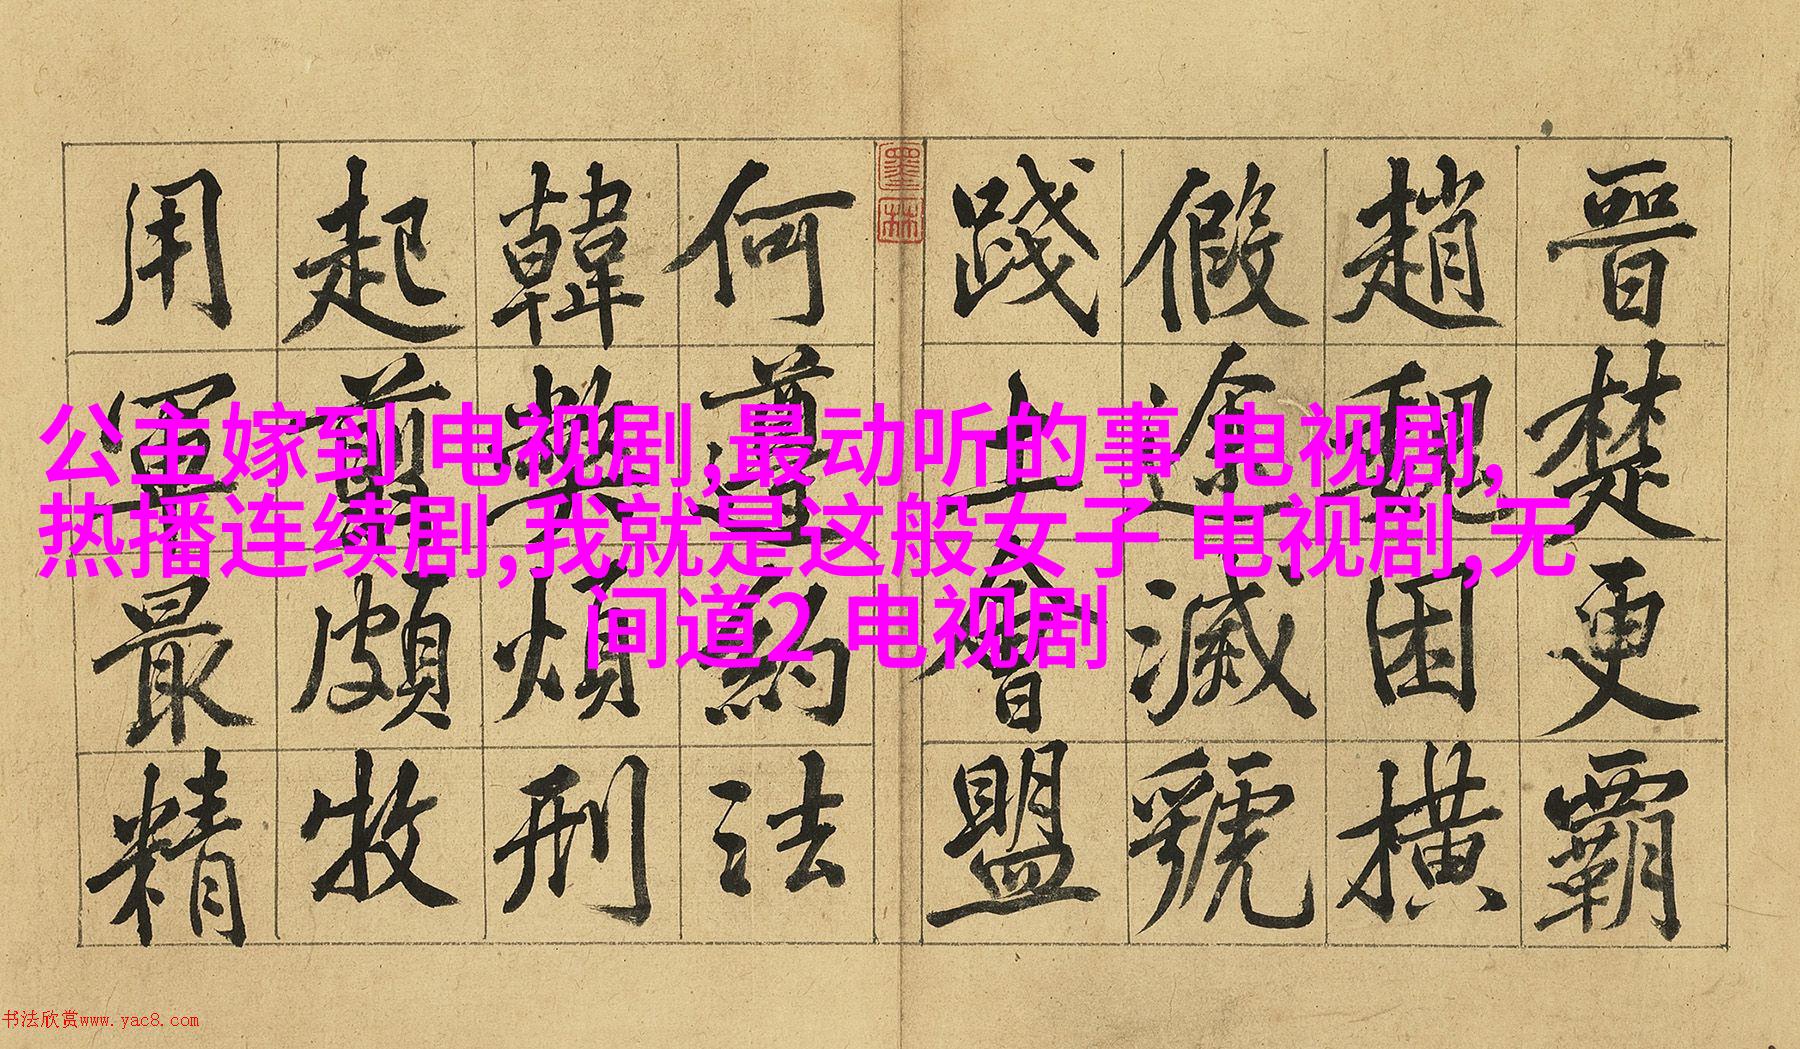 晉楚更霸
趙魏困橫
假途滅虢
踐土會盟
墨林
何遵約法
韓弊煩刑
起翦頗牧
用軍最精
公主嫁到 电视剧,最动听的事 电视剧,
热播连续剧,我就是这般女子 电视剧,无
间道2 电视剧
书法欣赏www.yac8.com